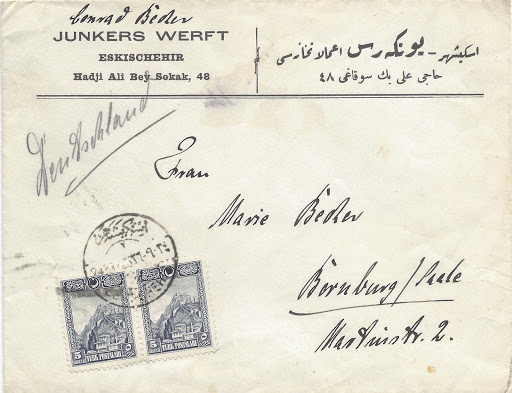 Conrad Becker
JUNKERS WERFT
ESKISCHEHIR
Hadji Ali Bey Sokak, 48
اسكيشهر - يونكرس اعمالاتخانه‌سى
حاجى على بك سوقاغى ٤٨
Deutschland
Frau
Marie Becker
Bernburg/Saale
Martinstr. 2.
5 TÜRK POSTALARI
5 TÜRK POSTALARI